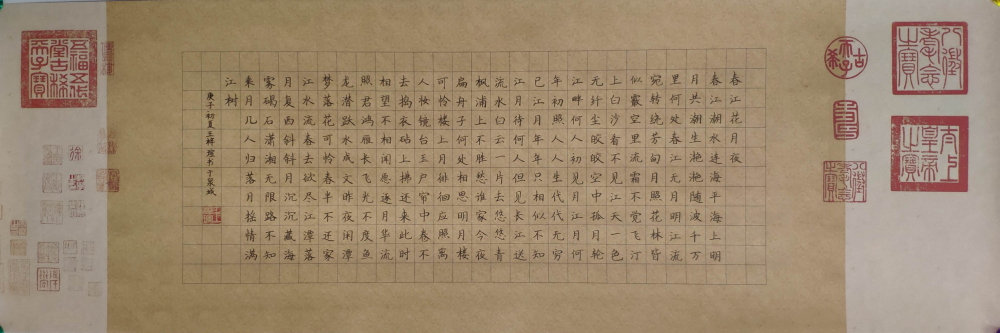 八徵耄念之寶
太上皇帝之寶
古稀天子
春江花月夜
春江潮水连海平海上明
月共潮生滟滟随波千万
里何处春江无月明江流
宛转绕芳甸月照花林皆
似霰空里流霜不觉飞汀
上白沙看不见江天一色
无纤尘皎皎空中孤月轮
江畔何人初见月江月何
年初照人人生代代无穷
已江月年年只相似不知
江月待何人但见长江送
流水白云一片去悠悠青
枫浦上不胜愁谁家今夜
扁舟子何处相思明月楼
可怜楼上月徘徊应照离
人妆镜台玉户帘中卷不
去捣衣砧上拂还来此时
相望不相闻愿逐月华流
照君鸿雁长飞光不度鱼
龙潜跃水成文昨夜闲潭
梦落花可怜春半不还家
江水流春去欲尽江潭落
月复西斜斜月沉沉藏海
雾碣石潇湘无限路不知
乘月几人归落月摇情满
江树
庚子初夏王祥书于泉城
五福五代堂古稀天子寶